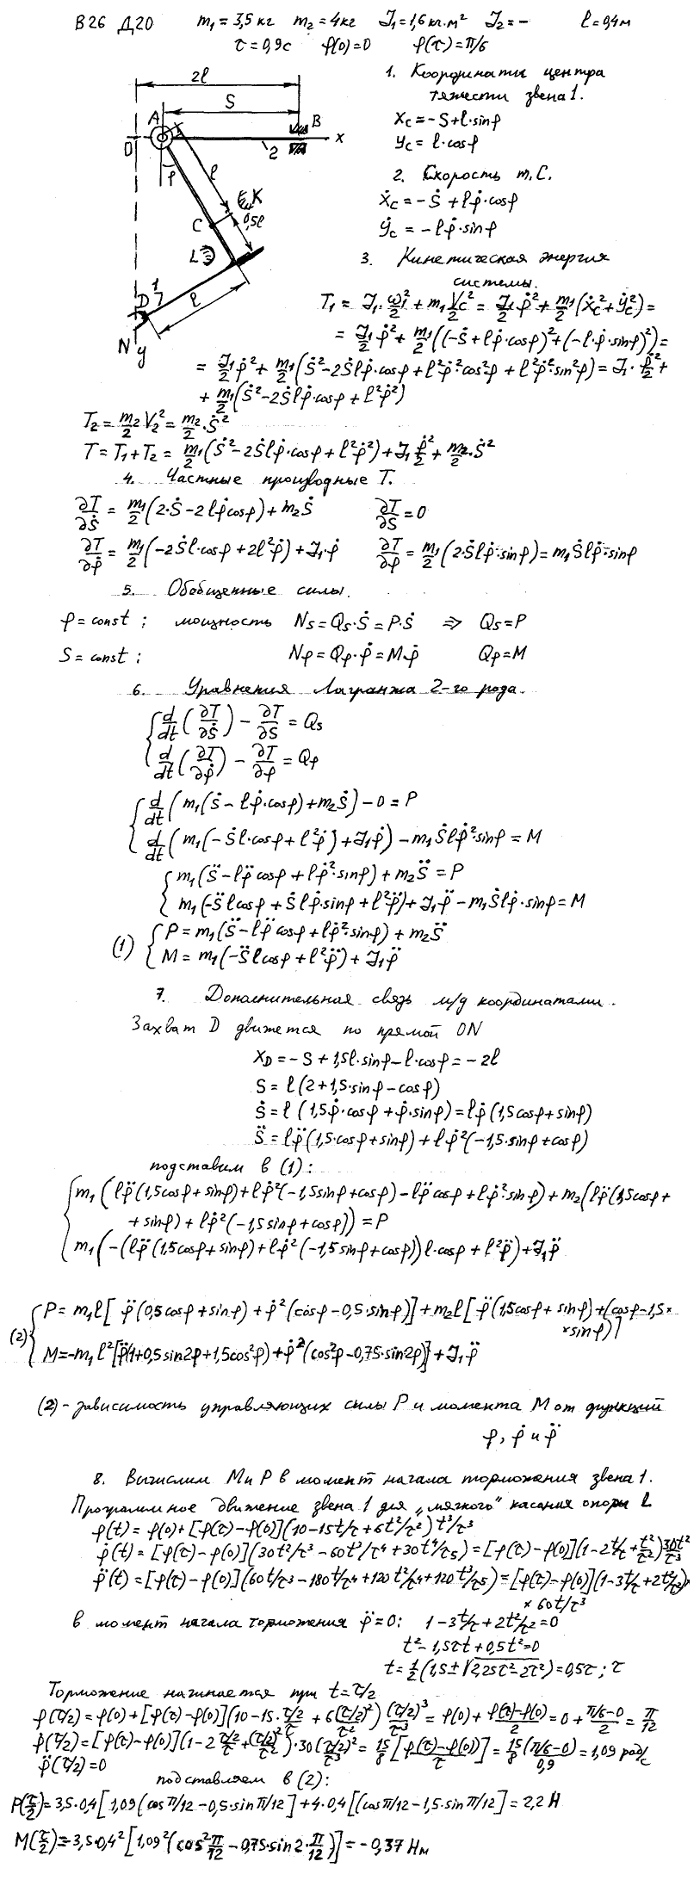 В26 Д20 m₁=3,5кг m₂=4кг J₁=1,6кг.м² J₂=– l=0,4м
τ=0,9с φ(0)=0 φ(τ)=π/6
1. Координаты центра
тяжести звена 1.
Xc=-S+l·sinφ
Yc=l·cosφ
2. Скорость т.С.
Ẋc=-Ṡ+lφ̇·cosφ
Ẏc=-lφ̇·sinφ
3. Кинетическая энергия
системы.
2l
S
A
B
O
x
2
φ
l
K
C
0,5l
L
1
D
l
N y
T₁=J₁·ω₁²/2+m₁Vc²/2=J₁/2·φ̇²+m₁/2(Ẋc²+Ẏc²)=
=J₁/2φ̇²+m₁/2((-Ṡ+lφ̇·cosφ)²+(-l·φ̇·sinφ)²)=
=J₁/2φ̇²+m₁/2(Ṡ²-2Ṡlφ̇·cosφ+l²φ̇²·cos²φ+l²φ̇²·sin²φ)=J₁·φ̇²/2+
+m₁/2(Ṡ²-2Ṡlφ̇·cosφ+l²φ̇²)
T₂=m₂/2V₂²=m₂/2·Ṡ²
T=T₁+T₂=m₁/2(Ṡ²-2Ṡlφ̇·cosφ+l²φ̇²)+J₁φ̇²/2+m₂/2·Ṡ²
4. Частные производные T.
∂T/∂Ṡ=m₁/2(2·Ṡ-2lφ̇cosφ)+m₂Ṡ ∂T/∂S=0
∂T/∂φ̇=m₁/2(-2Ṡl·cosφ+2l²φ̇)+J₁·φ̇ ∂T/∂φ=m₁/2(2·Ṡlφ̇·sinφ)=m₁Ṡlφ̇·sinφ
5. Обобщенные силы.
φ=const; мощность Ns=Qs·Ṡ=P·Ṡ ⇒ Qs=P
S=const; Nφ=Qφ·φ̇=M·φ̇ Qφ=M
6. Уравнения Лагранжа 2-го рода.
{d/dt(∂T/∂Ṡ)-∂T/∂S=Qs
d/dt(∂T/∂φ̇)-∂T/∂φ=Qφ
{d/dt(m₁(Ṡ-lφ̇·cosφ)+m₂Ṡ)-0=P
d/dt(m₁(-Ṡl·cosφ+l²φ̇)+J₁φ̇)-m₁Ṡlφ̇·sinφ=M
{m₁(S̈-lφ̈cosφ+lφ̇²·sinφ)+m₂S̈=P
m₁(-S̈lcosφ+Ṡlφ̇·sinφ+l²φ̈)+J₁φ̈-m₁Ṡlφ̇·sinφ=M
(1) {P=m₁(S̈-lφ̈cosφ+lφ̇²·sinφ)+m₂S̈
M=m₁(-S̈lcosφ+l²φ̈)+J₁φ̈
7. Дополнительная связь м/д координатами.
Захват D движется по прямой ON
X_D=-S+1,5l·sinφ-l·cosφ=-2l
S=l(2+1,5·sinφ-cosφ)
Ṡ=l(1,5φ̇·cosφ+φ̇·sinφ)=lφ̇(1,5cosφ+sinφ)
S̈=lφ̈(1,5·cosφ+sinφ)+lφ̇²(-1,5·sinφ+cosφ)
подставим в (1):
{m₁(lφ̈(1,5cosφ+sinφ)+lφ̇²(-1,5sinφ+cosφ)-lφ̈cosφ+lφ̇²·sinφ)+m₂(lφ̈(1,5cosφ+
+sinφ)+lφ̇²(-1,5sinφ+cosφ))=P
m₁(-(lφ̈(1,5cosφ+sinφ)+lφ̇²(-1,5sinφ+cosφ))l·cosφ+l²φ̈)+J₁φ̈
(2) {P=m₁l[φ̈(0,5cosφ+sinφ)+φ̇²(cosφ-0,5·sinφ)]+m₂l[φ̈(1,5cosφ+sinφ)+(cosφ-1,5×
×sinφ)]
M=-m₁l²[φ̈(1+0,5sin2φ+1,5cos²φ)+φ̇²(cos²φ-0,75·sin2φ)]+J₁φ̈
(2)-зависимость управляющих силы P и момента M от функций
φ, φ̇ и φ̈
8. Вычислим M и P в момент начала торможения звена 1.
Программное движение звена 1 для „мягкого" касания опоры L
φ(t)=φ(0)+[φ(τ)-φ(0)](10-15t/τ+6t²/τ²)t³/τ³
φ̇(t)=[φ(τ)-φ(0)](30t²/τ³-60t³/τ⁴+30t⁴/τ⁵)=[φ(τ)-φ(0)](1-2t/τ+t²/τ²)30t²/τ³
φ̈(t)=[φ(τ)-φ(0)](60t/τ³-180t²/τ⁴+120t³/τ⁵)=[φ(τ)-φ(0)](1-3t/τ+2t²/τ²)×
×60t/τ³
в момент начала торможения φ̈=0: 1-3t/τ+2t²/τ²=0
t²-1,5τt+0,5τ²=0
t=1/2(1,5±√2,25τ²-2τ²)=0,5τ; τ
Торможение начинается при t=τ/2
φ(τ/2)=φ(0)+[φ(τ)-φ(0)](10-15·τ/2/τ+6(τ/2)²/τ²)(τ/2)³/τ³=φ(0)+φ(τ)-φ(0)/2=0+π/6-0/2=π/12
φ̇(τ/2)=[φ(τ)-φ(0)](1-2τ/2/τ+(τ/2)²/τ²)·30(τ/2)²/τ³=15/8[φ(τ)-φ(0)/τ]=15/8(π/6-0)/0,9=1,09 рад/с
φ̈(τ/2)=0
подставляем в (2):
P(τ/2)=3,5·0,4[1,09(cosπ/12-0,5·sinπ/12]+4·0,4[(cosπ/12-1,5·sinπ/12]=2,2Н
M(τ/2)=-3,5·0,4²[1,09²(cos²π/12-0,75·sin2·π/12)]=-0,37Нм